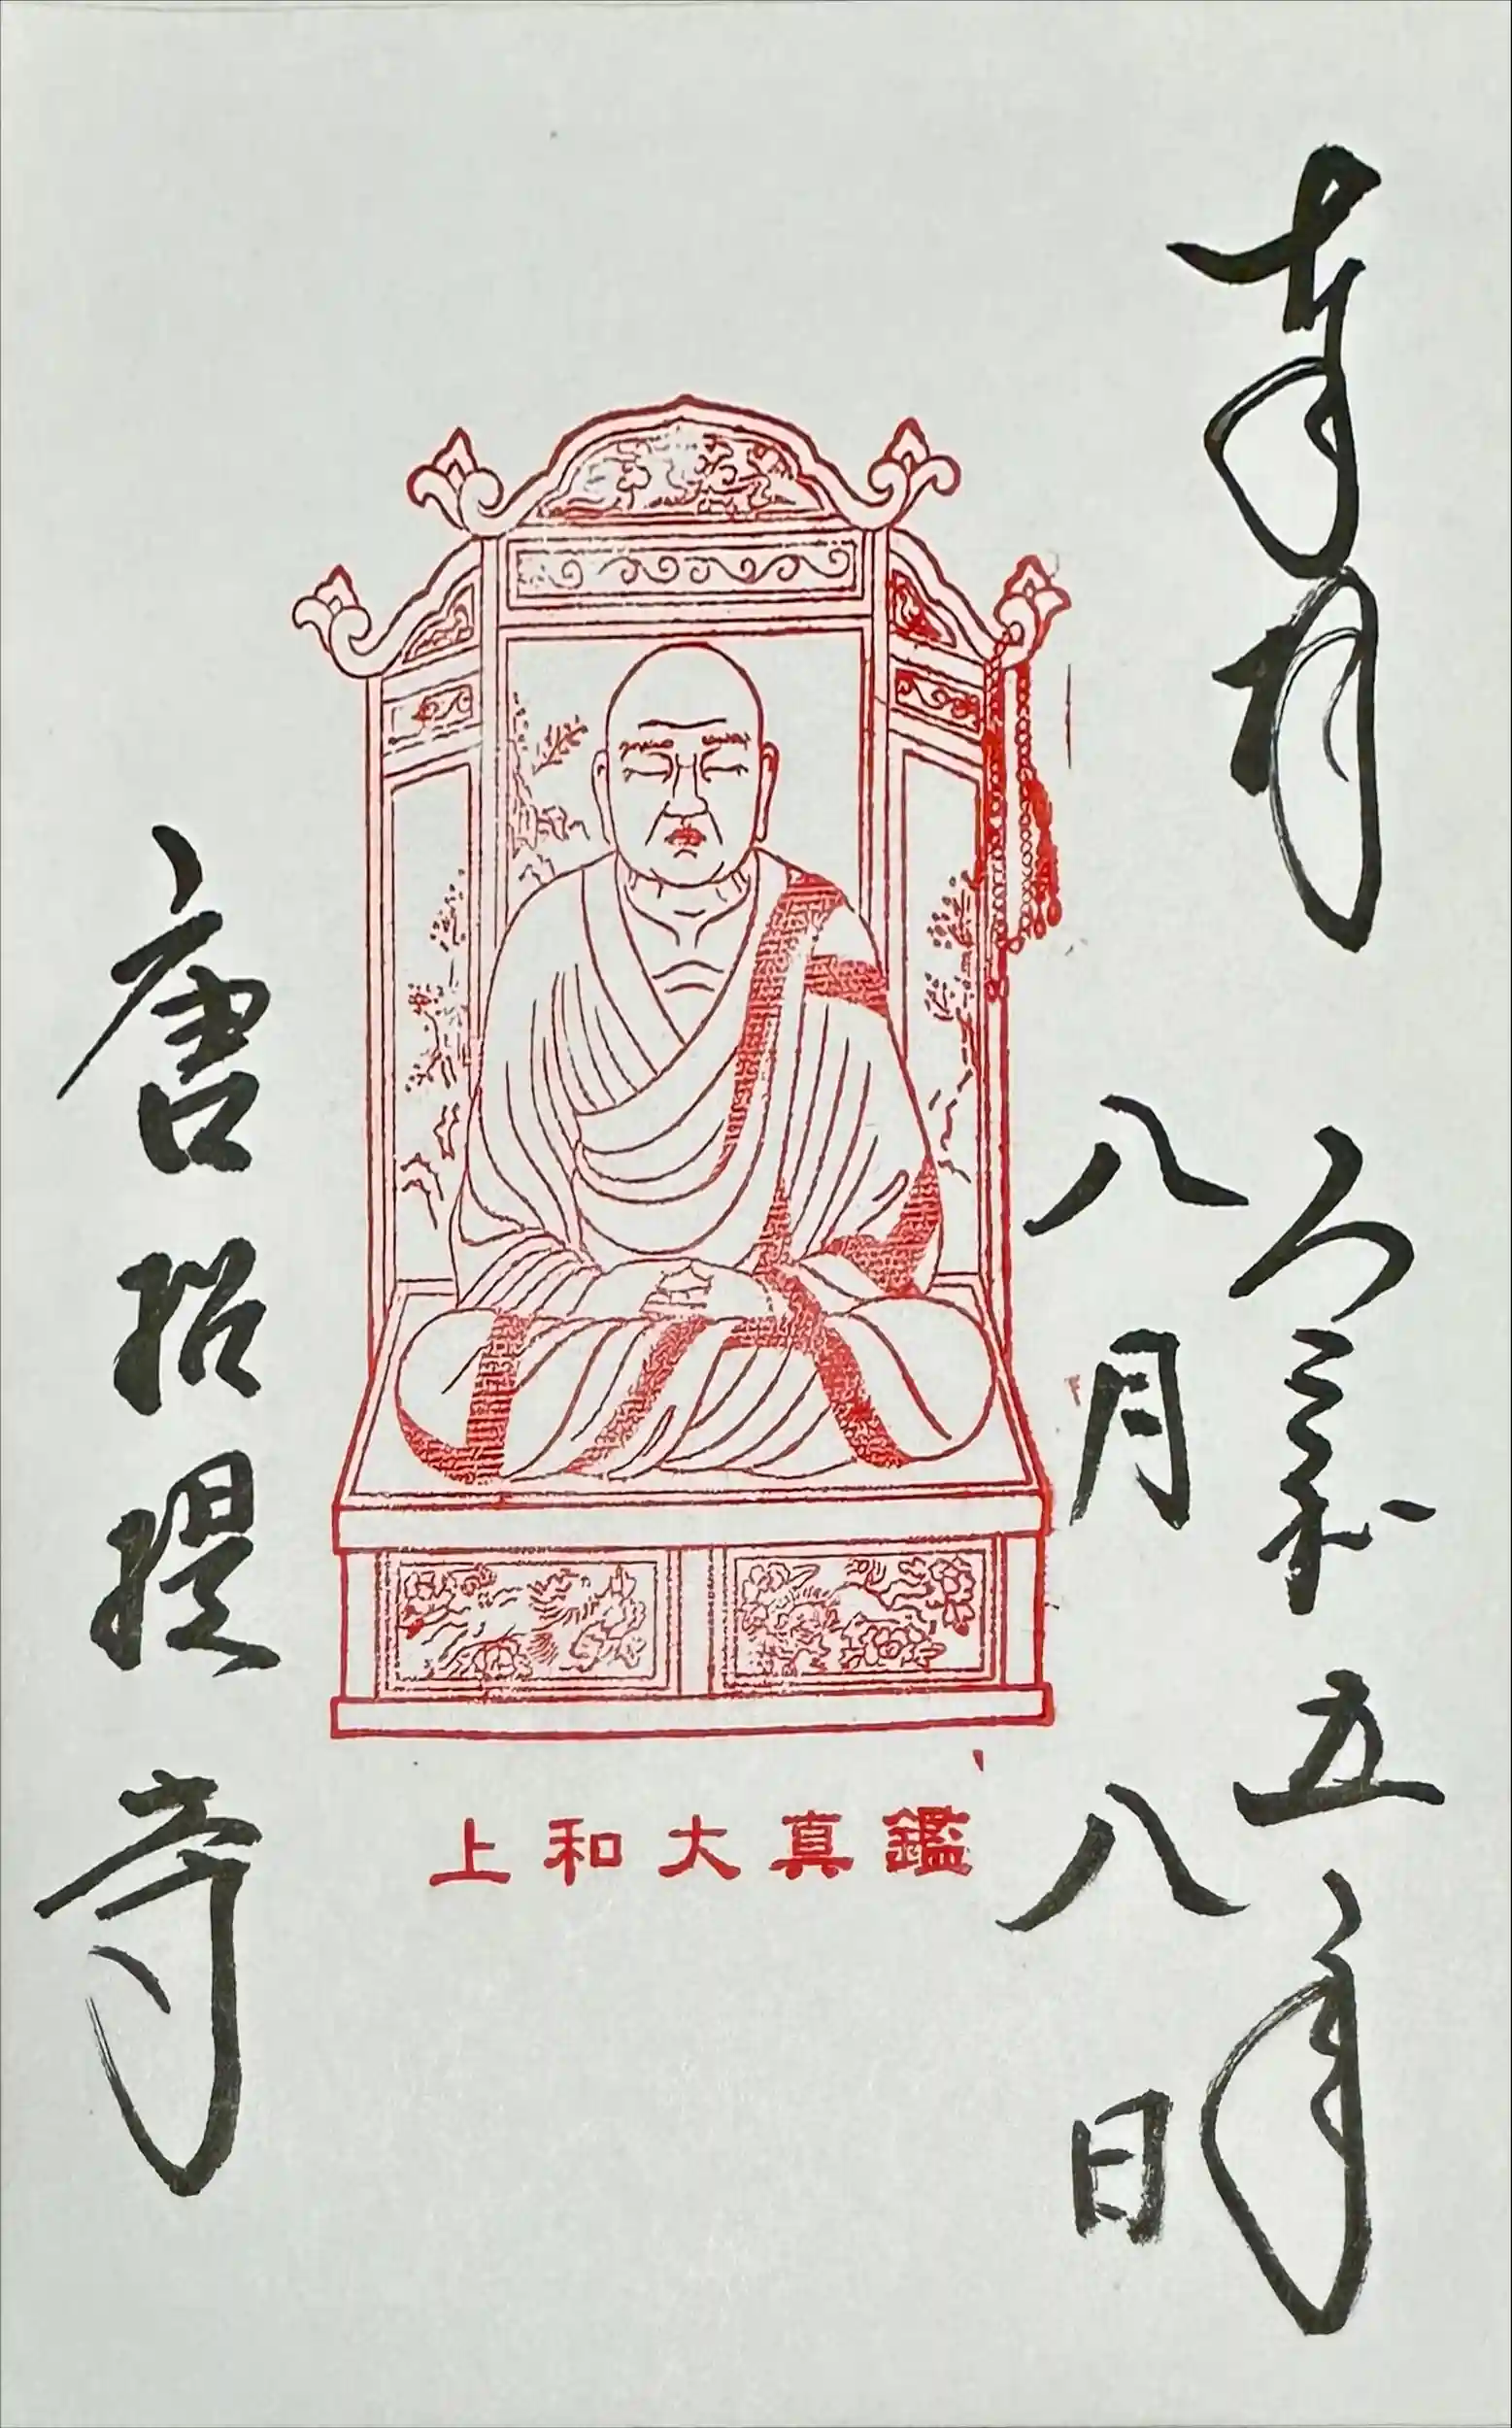 奉拝 令和五年
八月八日
鑑真大和上
唐招提寺